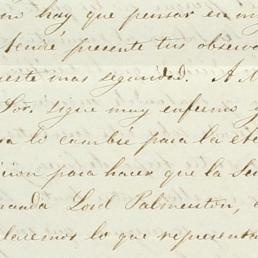 hay que pensar en
tendré presente tus observa
este mas seguridad. A
Sor. sigue muy enfermo y
lo cambié para la
para hacer que la
manda Lord Palmerston,
lo que representa